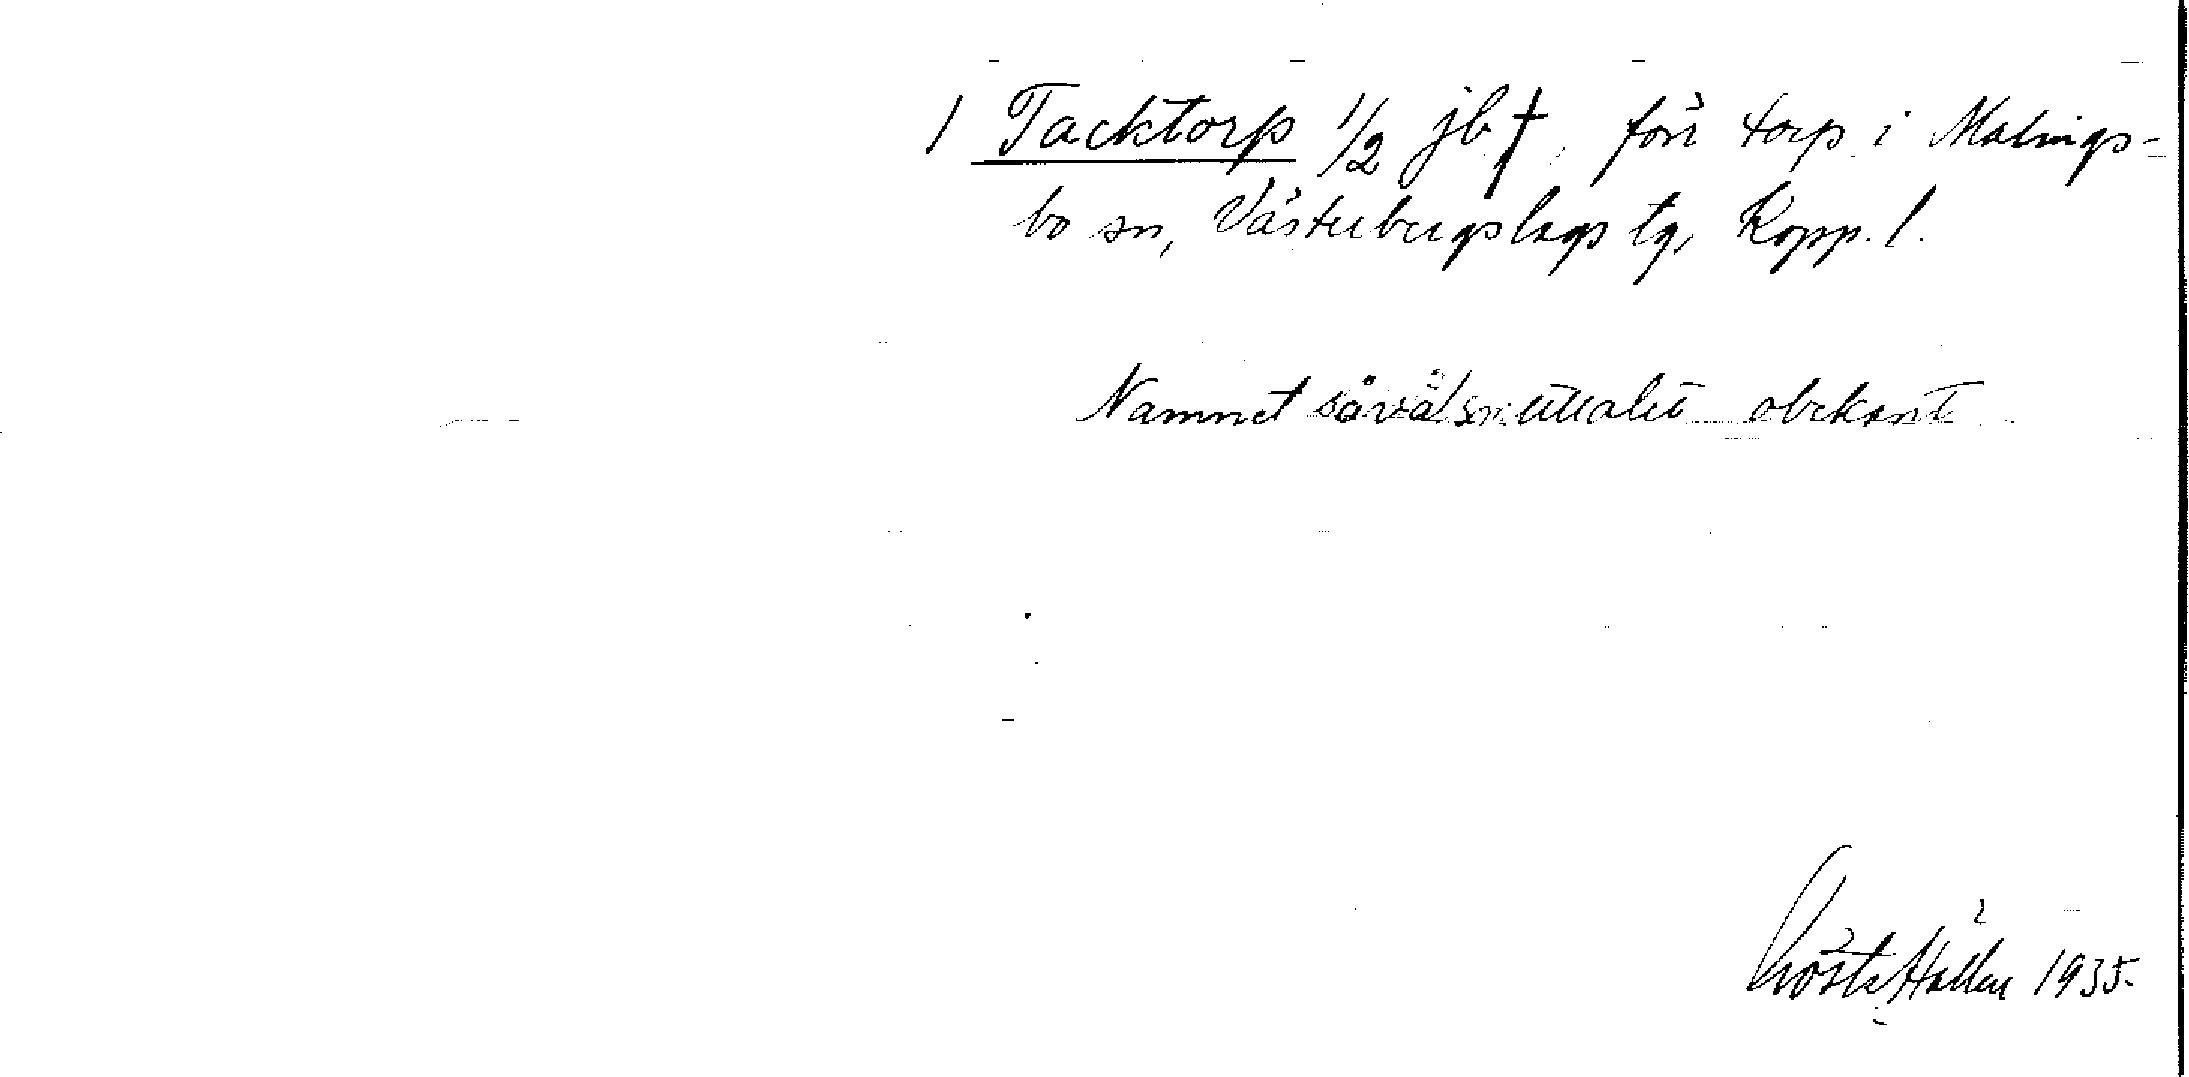 1 Tacktorp 1/2 jb †, förr torp i Malings-
bo sn, Västerbergslags tg, Kopp. l.
Namnet såväl sm uttalet obekant
Gösta Hallén 1935.